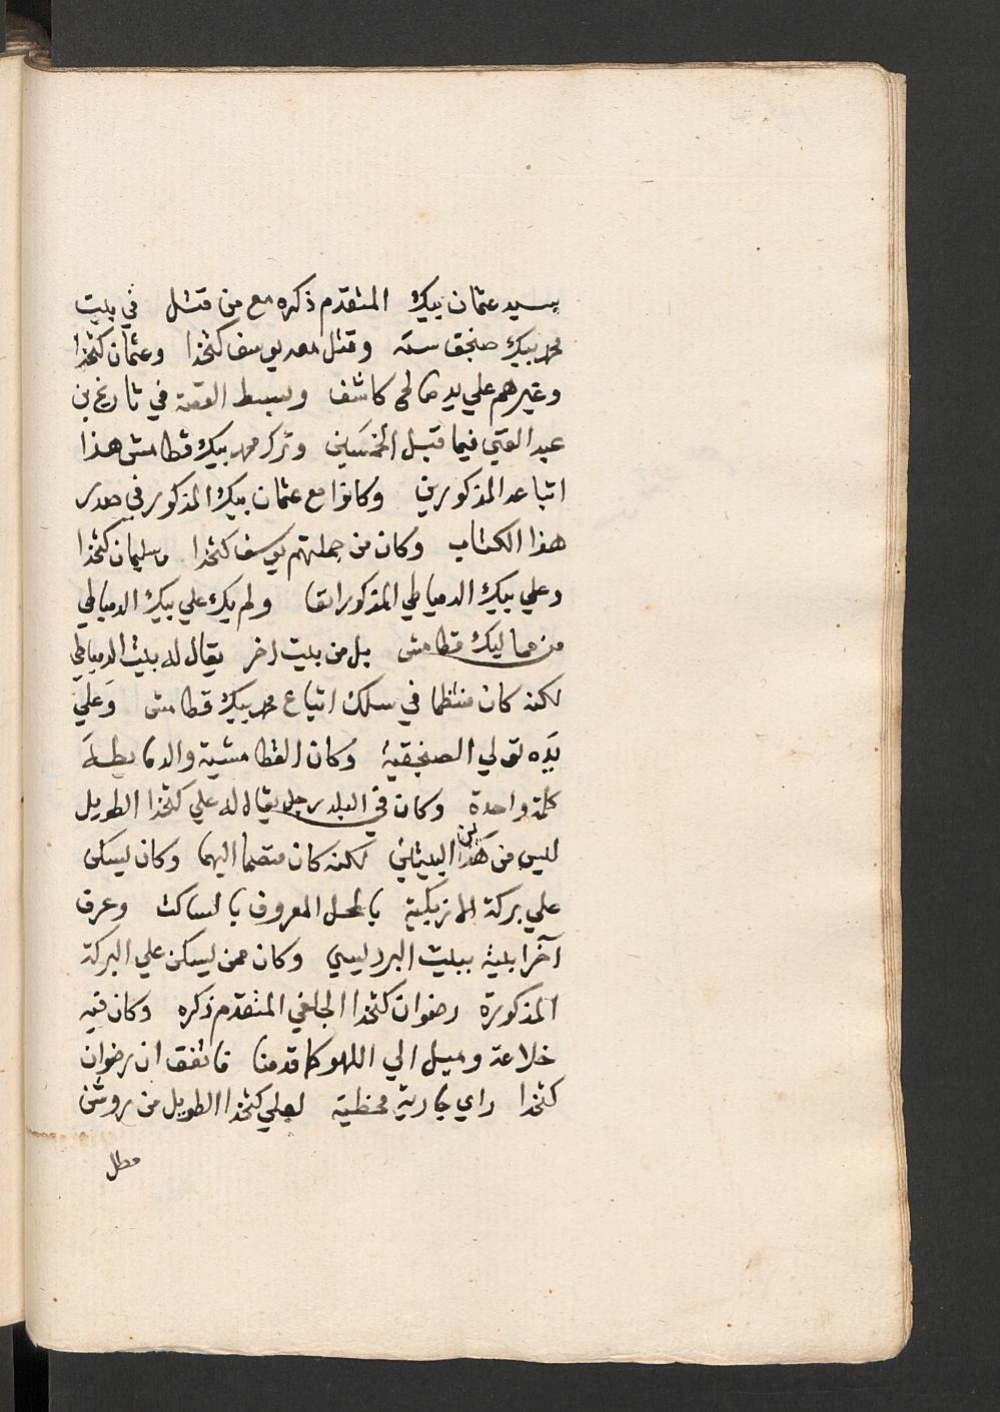 سيد عثمان بيك المتقدم ذكره مع من قتل في بيت
محمد بيك صنجق سته وقتل معه يوسف كتخذا وعثمان كتخذا
وغيرهم علي يد صالح كاشف وبسط القصة في تاريخ بن
عبد الغني فيما قبل الخمسين وترك محمد بيك قطامش هذا
اتباعه المذكورين وكانوا مع عثمان بيك المذكور في صدر
هذا الكتاب وكان من جملتهم يوسف كتخذا وسليمان كتخذا
وعلي بيك الدمياطي المذكور انفا ولم يك علي بيك الدمياطي
من مماليك قطامش بل من بيت اخر يقال له بيت الدمياطي
لكنه كان منتظما في سلك اتباع محمد بيك قطامش وعلي
يده تولي الصنجقية وكان القطامشية والدمايطة
كلمة واحدة وكان في البلد رجل يقال له علي كتخذا الطويل
ليس من هذين البيتين لكنه كان منضما اليهما وكان يسكن
علي بركة الازبكية بالمحل المعروف بالساكت وعرف
آخرا بيته ببيت البرديسي وكان ممن يسكن علي البركة
المذكورة رضوان كتخذا الجلفي المتقدم ذكره وكان فيه
خلاعة وميل الي اللهو كما قدمنا فاتفق ان رضوان
كتخذا راي جارية محظية لعلي كتخذا الطويل من روشن
مطل